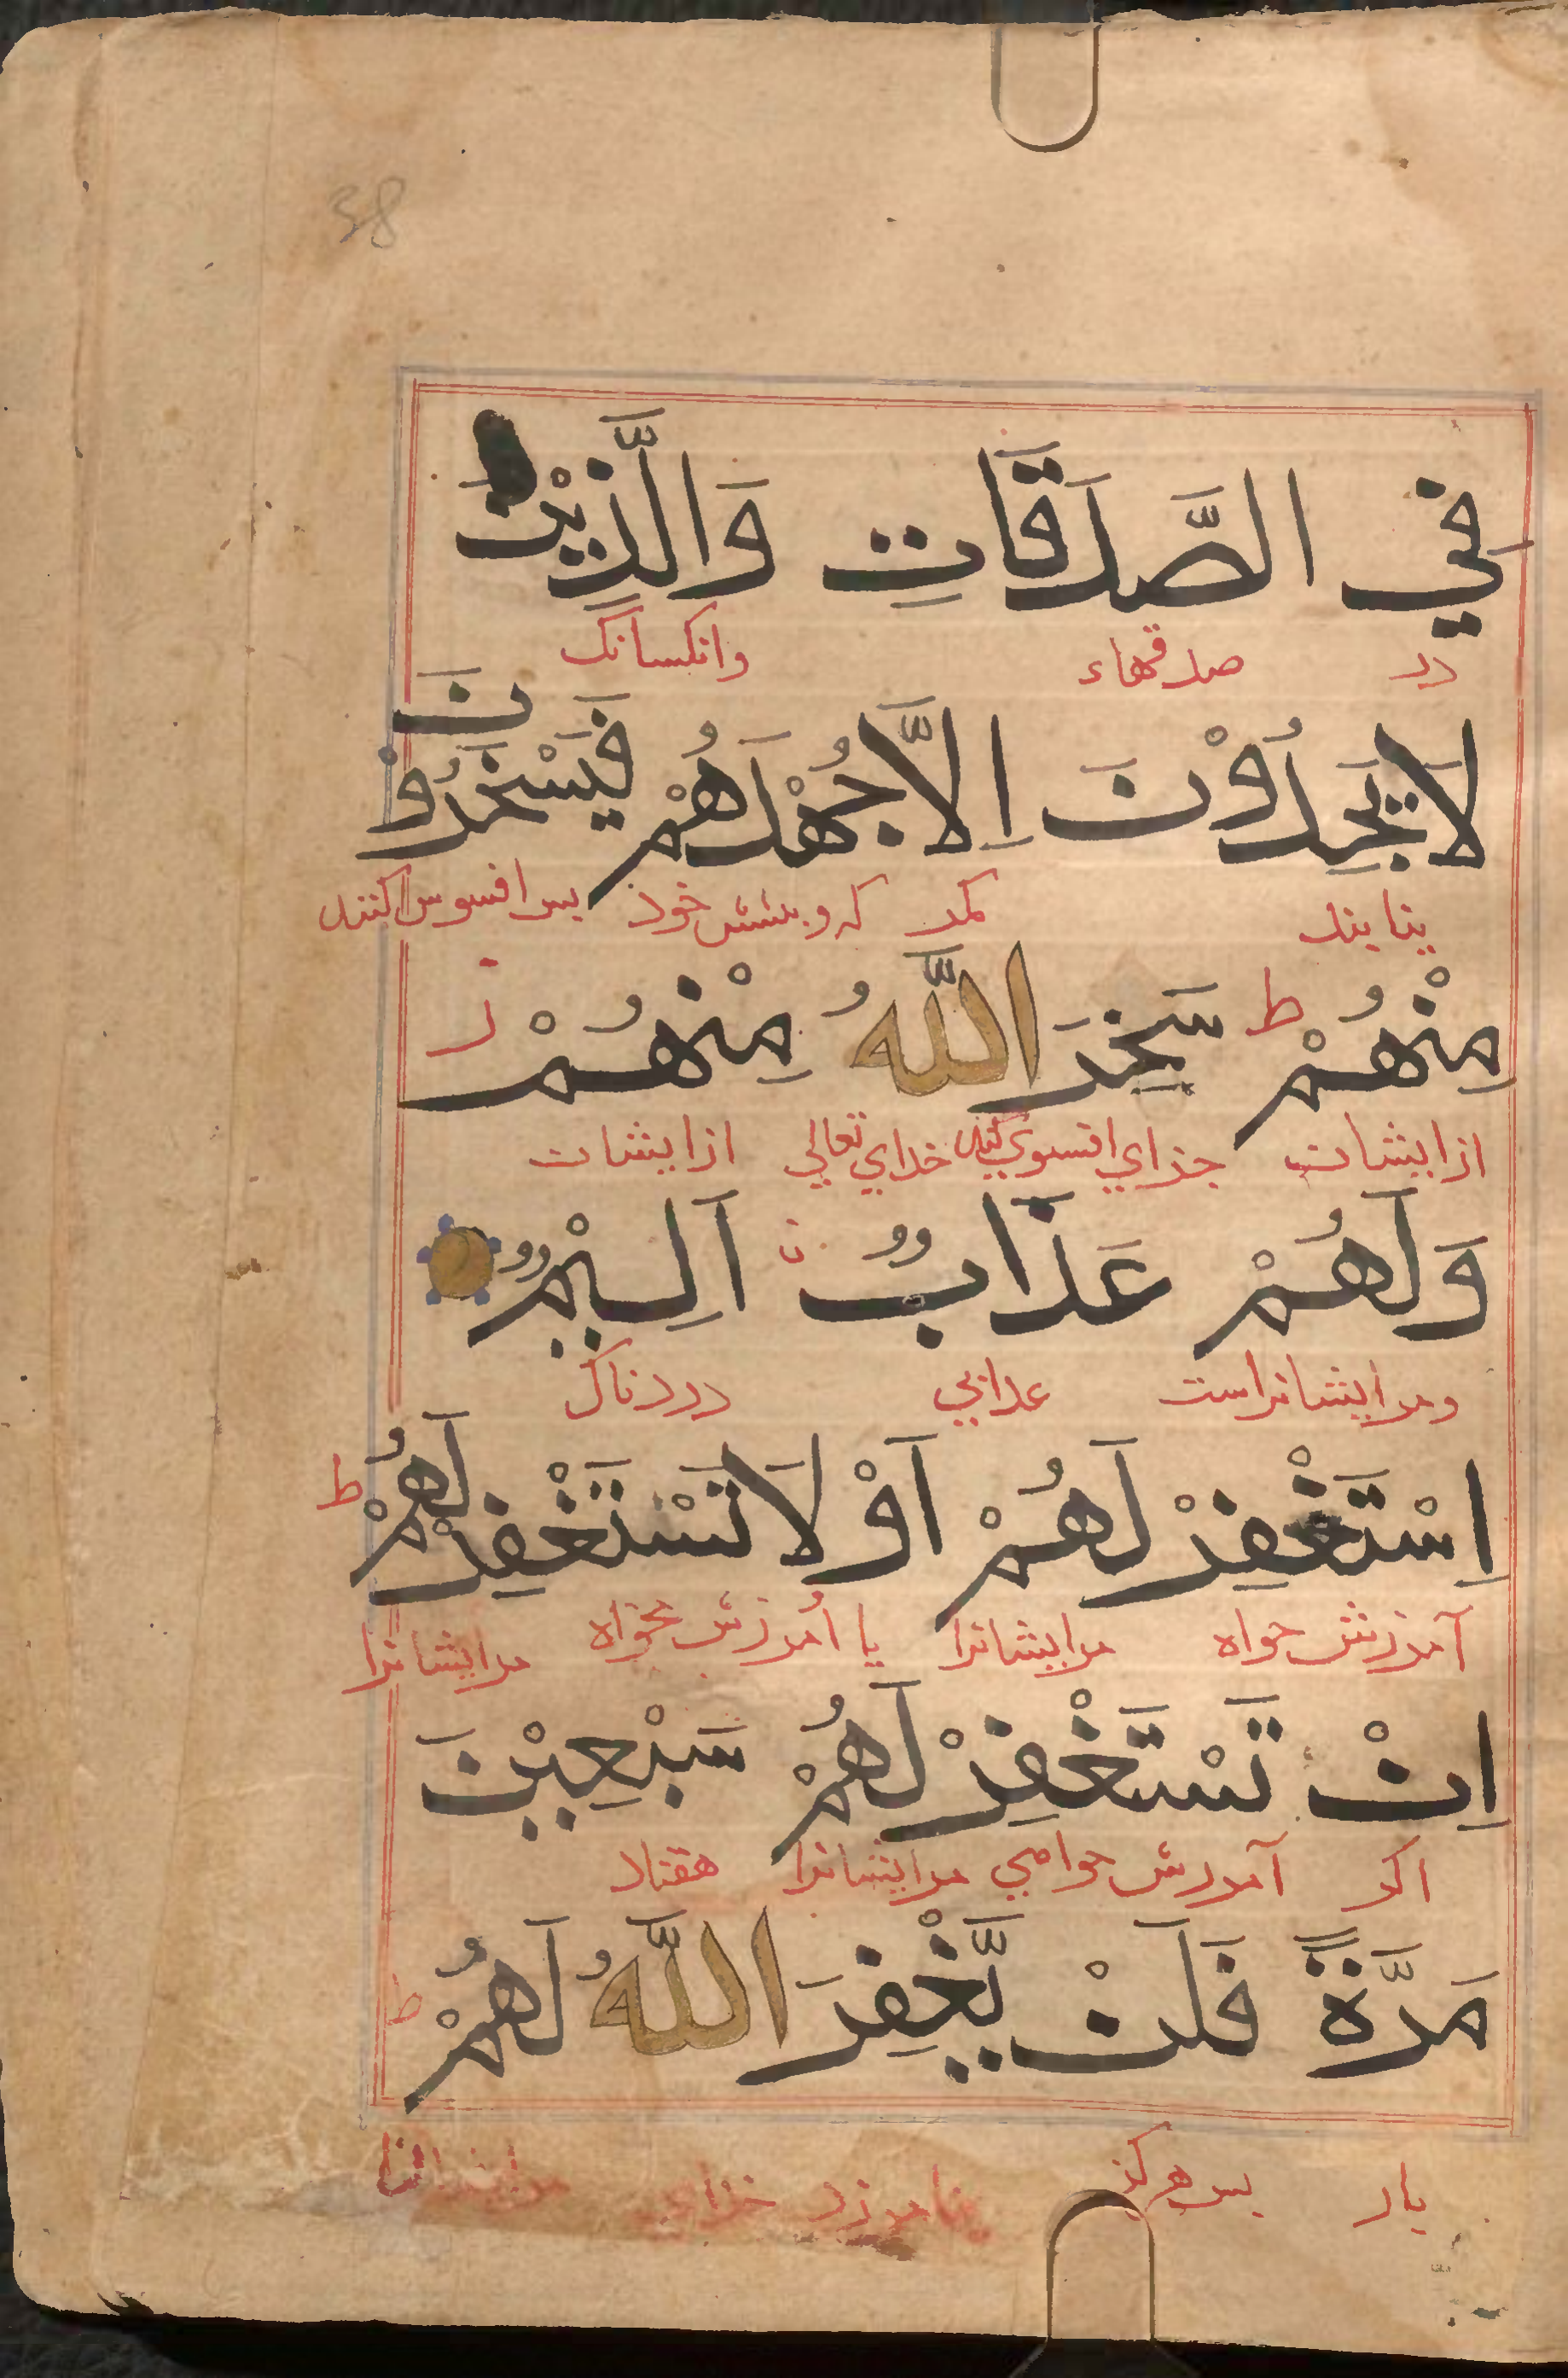 38
فِي الصَّدَقَاتِ وَالَّذِيْنَ
در صدقهاء وانكسانک
لَا يَجِدُوْنَ اِلَّا جُهْدَهُمْ فَيَسْخَرُوْنَ
نیابند مگر کوشش خود پس افسوس کنند
مِنْهُمْ ط سَخِرَ اللّٰهُ مِنْهُمْ ز
از ایشان جزای افسوس کند خدای تعالی از ایشان
وَلَهُمْ عَذَابٌ اَلِيْمٌ
ومر ایشانراست عذابی دردناک
اِسْتَغْفِرْ لَهُمْ اَوْ لَا تَسْتَغْفِرْ لَهُمْ ط
آمرزش خواه مرایشانرا یا آمرزش نخواه مرایشانرا
اِنْ تَسْتَغْفِرْ لَهُمْ سَبْعِيْنَ
اکر آمرزش خواهی مرایشانرا هفتاد
مَرَّةً فَلَنْ يَّغْفِرَ اللّٰهُ لَهُمْ ط
بار پس هرکز نیامرزد خدای مرایشانرا